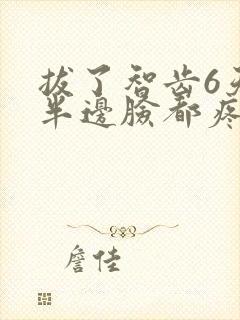 拔了智齿6天
半邊臉都疼
詹佳